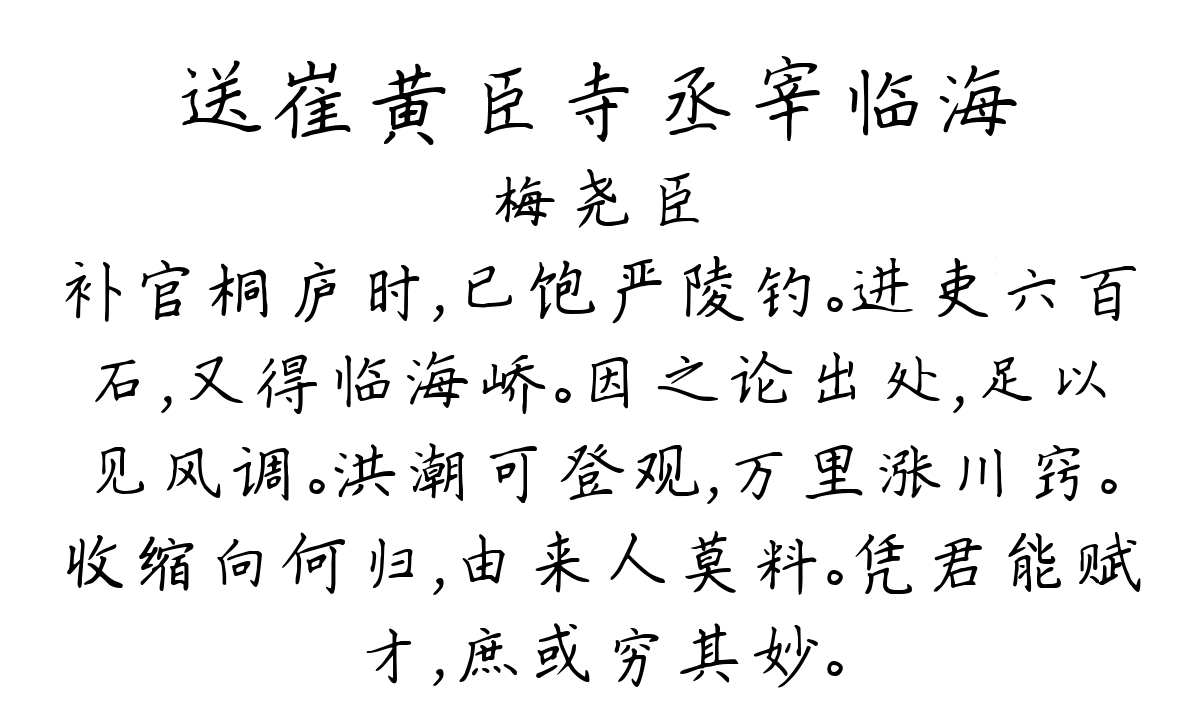 送崔黄臣寺丞宰临海
梅尧臣
补官桐庐时,已饱严陵钓。进吏六百
石,又得临海峤。因之论出处,足以
见风调。洪潮可登观,万里涨川窍。
收缩向何归,由来人莫料。凭君能赋
才,庶或穷其妙。